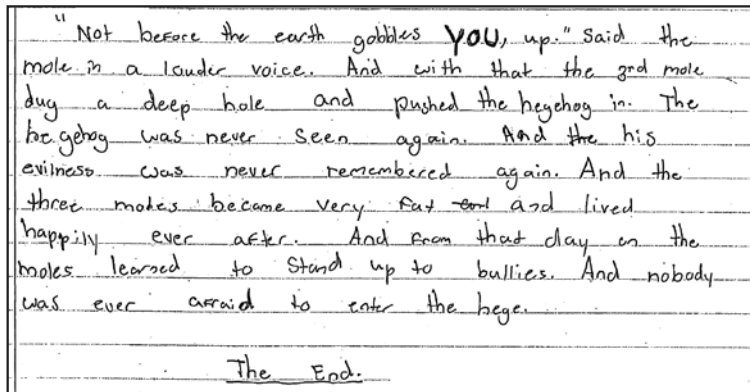 "Not before the earth gobbles YOU, up." Said the
mole in a louder voice. And with that the 3rd mole
dug a deep hole and pushed the hegehog in. The
hegehog was never seen again. And the his
evilness was never remembered again. And the
three moles became very fat and lived
happily ever after. And from that day on the
moles learned to stand up to bullies. And nobody
was ever afraid to enter the hege.
The End.